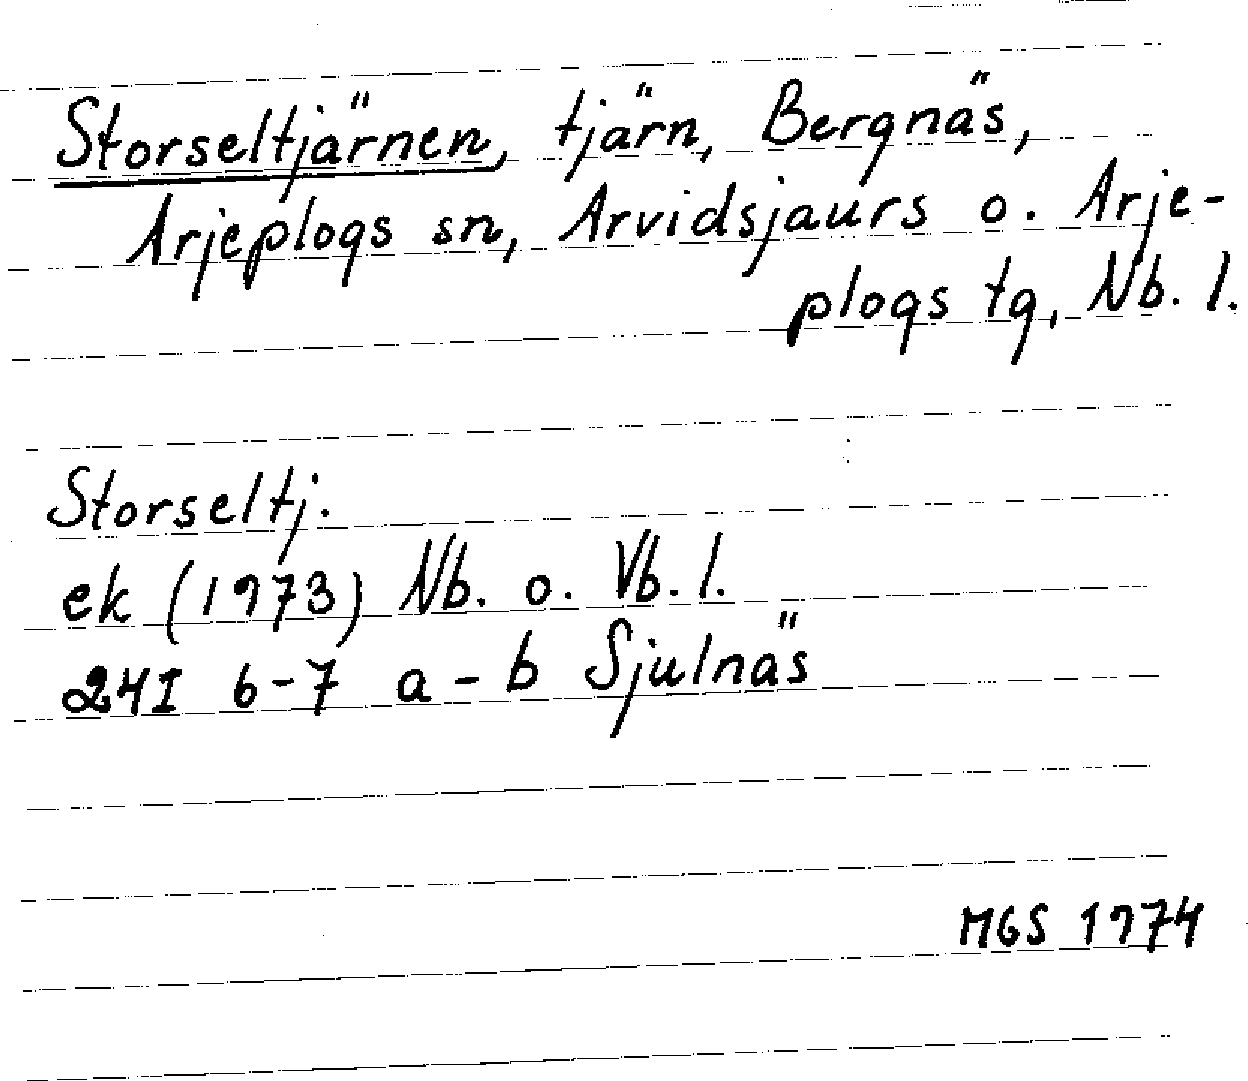 Storseltjärnen, tjärn, Bergnäs,
Arjeplogs sn, Arvidsjaurs o. Arje-
plogs tg, Nb. l.
Storseltj.
ek (1973) Nb. o. Vb. l.
24I 6-7 a-b Sjulnäs
MGS 1974